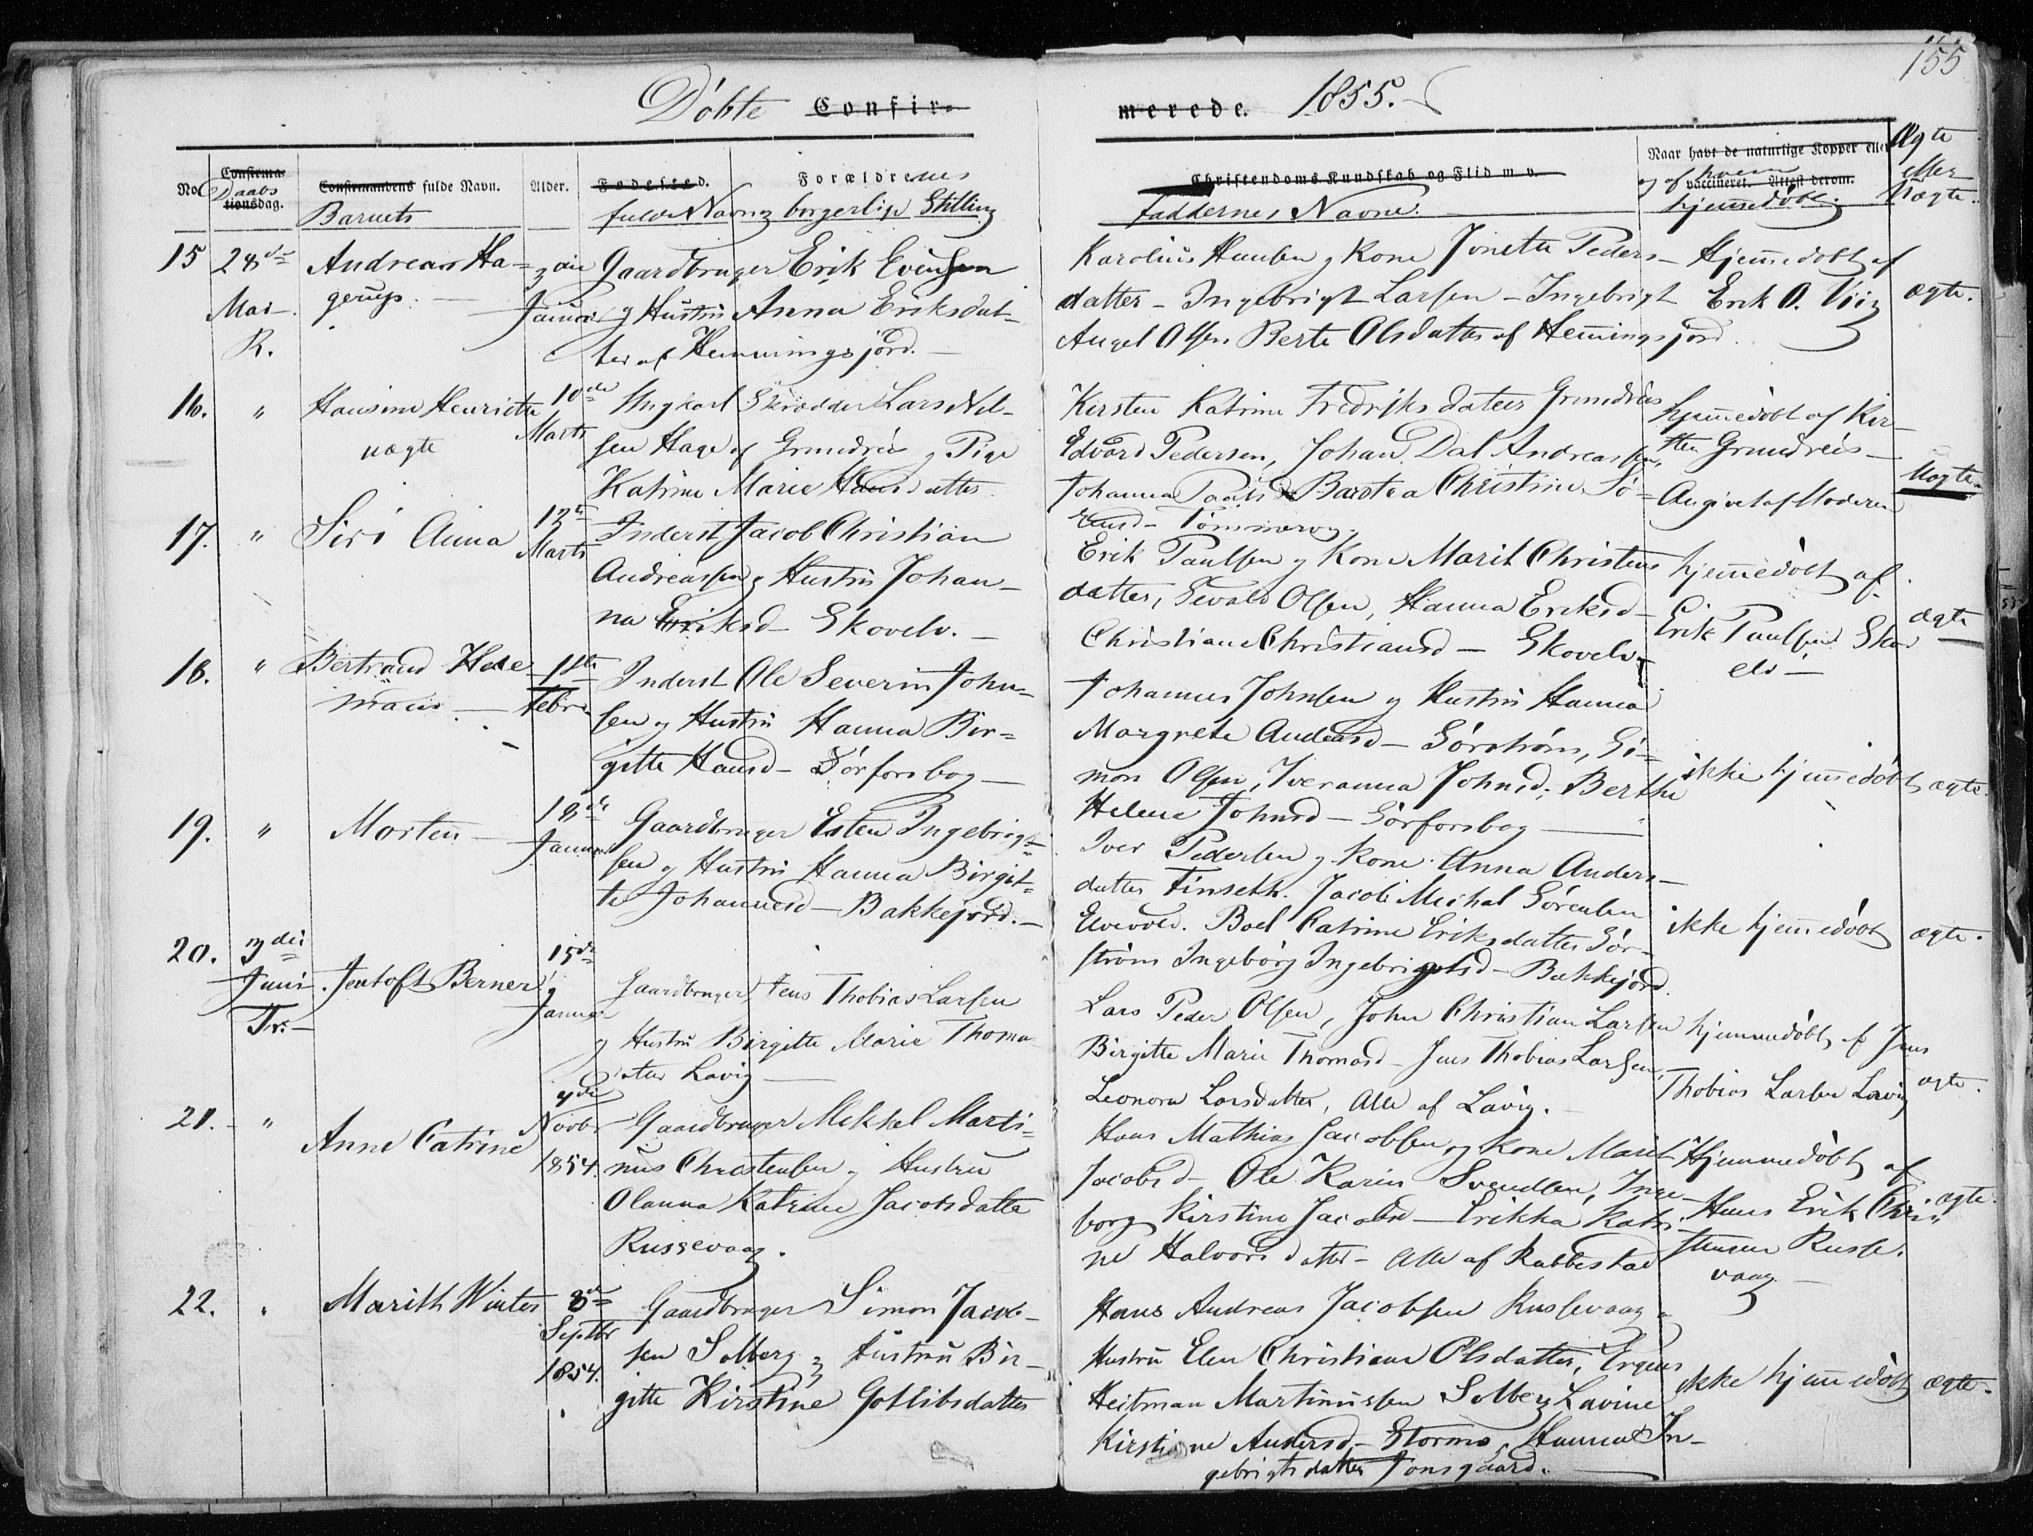 155
Døbte Confir-
merede. 1855.
No. Confirma-tionsdag. Daabs
Confirmandens fulde Navn. Barnets
Alder.
Fødested. Forældrenes
fulde Navn og borgerlige Stilling
Christendoms Kundskab og Flid m. v.
Faddernes Navne.
Naar havt de naturlige Kopper eller
vaccineret. Attest derom.
og af hvem
hjemmedøbt.
Ægte
eller
Uægte.
15 28de
Mai
R.
Andreas Ha-
gerups.
Januar
Gaardbruger Erik Evensen
og Hustru Anna Eriksdat-
ter af Hemmingsjord.
Karolius Hansen og Kone Jonette Peders-
datter - Ingebrigt Larsen - Ingebrigt
Angel Olsen Berte Olsdatter af Hemingsjord.
Hjemmedøbt af
Erik O. Viig
ægte.
16. "
Hansine Henriette
uægte
10de
Marts
Ungkarl Skrædder Lars Nil-
sen Hage af Grundreis og Pige
Katrine Marie Hansdatter.
Kirsten Katrine Fredriksdatter Grundreis
Edvard Pedersen, Johan Dal Andreassen,
Johanna Paulsd Christine Sø-
rensd- Tømmervig.
hjemmedøbt af Kir-
sten Grundreis -
Angivet af Moderen
Uægte.
17. "
Siri Anna
13de
Marts
Inderst Jacob Christian
Andreassen og Hustru Johan-
na Eriksd- Skovelv. -
Erik Paulsen og Kone Marit Christens
datter, Sivald Olsen, Hanna Eriksd-
Christiane Christiansd - Skovelv
hjemmedøbt af
Erik Paulsen Skov
elv -
ægte
18. "
Bertrand Hee
mann -
11te
Febr.
Inderst Ole Severin John-
sen og Hustru Hanna Bir-
gitte Hansd- Sørforsbog -
Johannes Johnsen og Hustru Hanna
Margrete Andersd- Sørstrøm, Si-
mon Olsen, Iveranna Johnsd, Berthe
Helene Johnsd - Sørforsbog -
ikke hjemmedøbt
ægte.
19. "
Morten -
18de
Januar
Gaardbruger Esten Ingebrigt-
sen og Hustru Hanna Birgit-
te Johannesd - Bakkejord. -
Iver Pedersen og Kone Anna Anders-
datter Finseth. Jacob Michal Sørensen
Elvevold. Boel Catrine Eriksdatter Sør-
strøm Ingeborg Ingebrigtsd - Bakkejord.
ikke hjemmedøbt
ægte.
20. 3die
Juni.
Tr. -
Jentoft Berner
15de
Januar
Gaardbruger Jens Thobias Larsen
og Hustru Birgitte Marie Thoma
datter Lavig -
Lars Peder Olsen, John Christian Larsen
Birgitte Marie Thomasd - Jens Thobias Larsen,
Leonora Larsdatter, Alle af Lavig. -
hjemmedøbt af Jens
Thobias Larsen Lavig
ægte.
21. - "
Anne Catrine
Novbr
1854.
Gaardbruger Mekkel Marti-
nus Christensen og Hustru
Olanna Katrine Jacobsdatter
Russevaag.
Hans Mathias Jacobsen og Kone Marit
Jacobsd - Ole Karius Svendsen, Inge-
borg Kirstine Jacobsd - Erikka Katri-
ne Halvorsdatter - Alle af Kobbestad
Hjemmedøbt af
Hans Erik Chri-
stensen Russe-
vaag -
ægte.
22. "
Marith Winter
8de
Septbr
1854.
Gaardbruger Simon Jacob-
sen Solberg og Hustru Bir-
gitte Kirstine Gotlibsdatter
Hans Andreas Jacobsen Russevaag og
Hustru Elen Christiane Olsdatter,
Heitman Martinussen Solberg, Lavine
Kirstine Andersd - Hanna In-
gebrigtsdatter Tonsgaard. -
ikke hjemmedøbt
ægte.